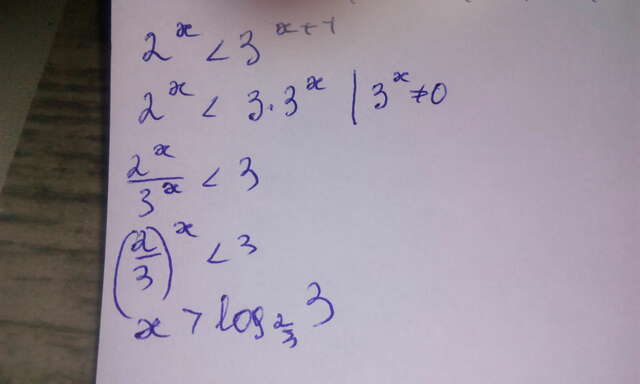 2^x < 3^{x+1}
2^x < 3·3^x | 3^x ≠ 0
\frac{2^x}{3^x} < 3
(\frac{2}{3})^x < 3
x > log_{\frac{2}{3}} 3